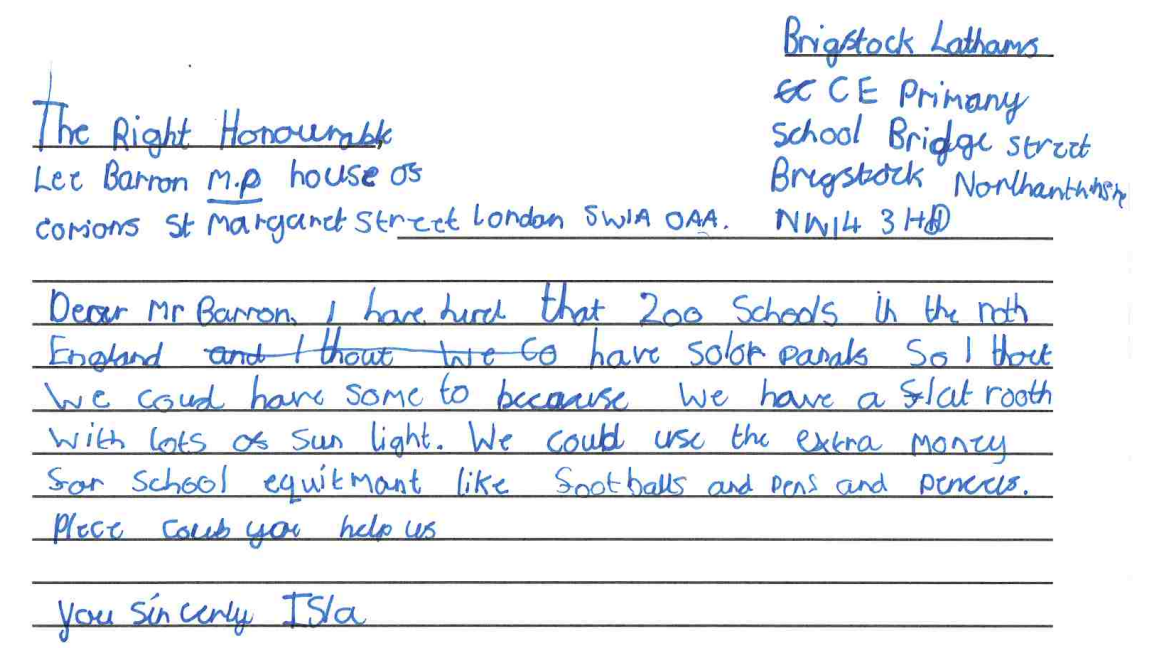 Brigstock Lathams
CE Primany
School Bridge street
Bregstock Northanthshire
NN14 3HD
The Right Honourable
Lee Barron M.P house of
comons St Margaret Street London SW1A 0AA.
Dear Mr Barron, I have hurd that 200 Schools in the noth
England and I thout we Co have solor panals So I thout
We coud have some to because We have a flat rooth
With lots of sun light. We could use the extra money
for School equitmant like footballs and pens and pencils.
Plece coub you help us
you sincerly Isla